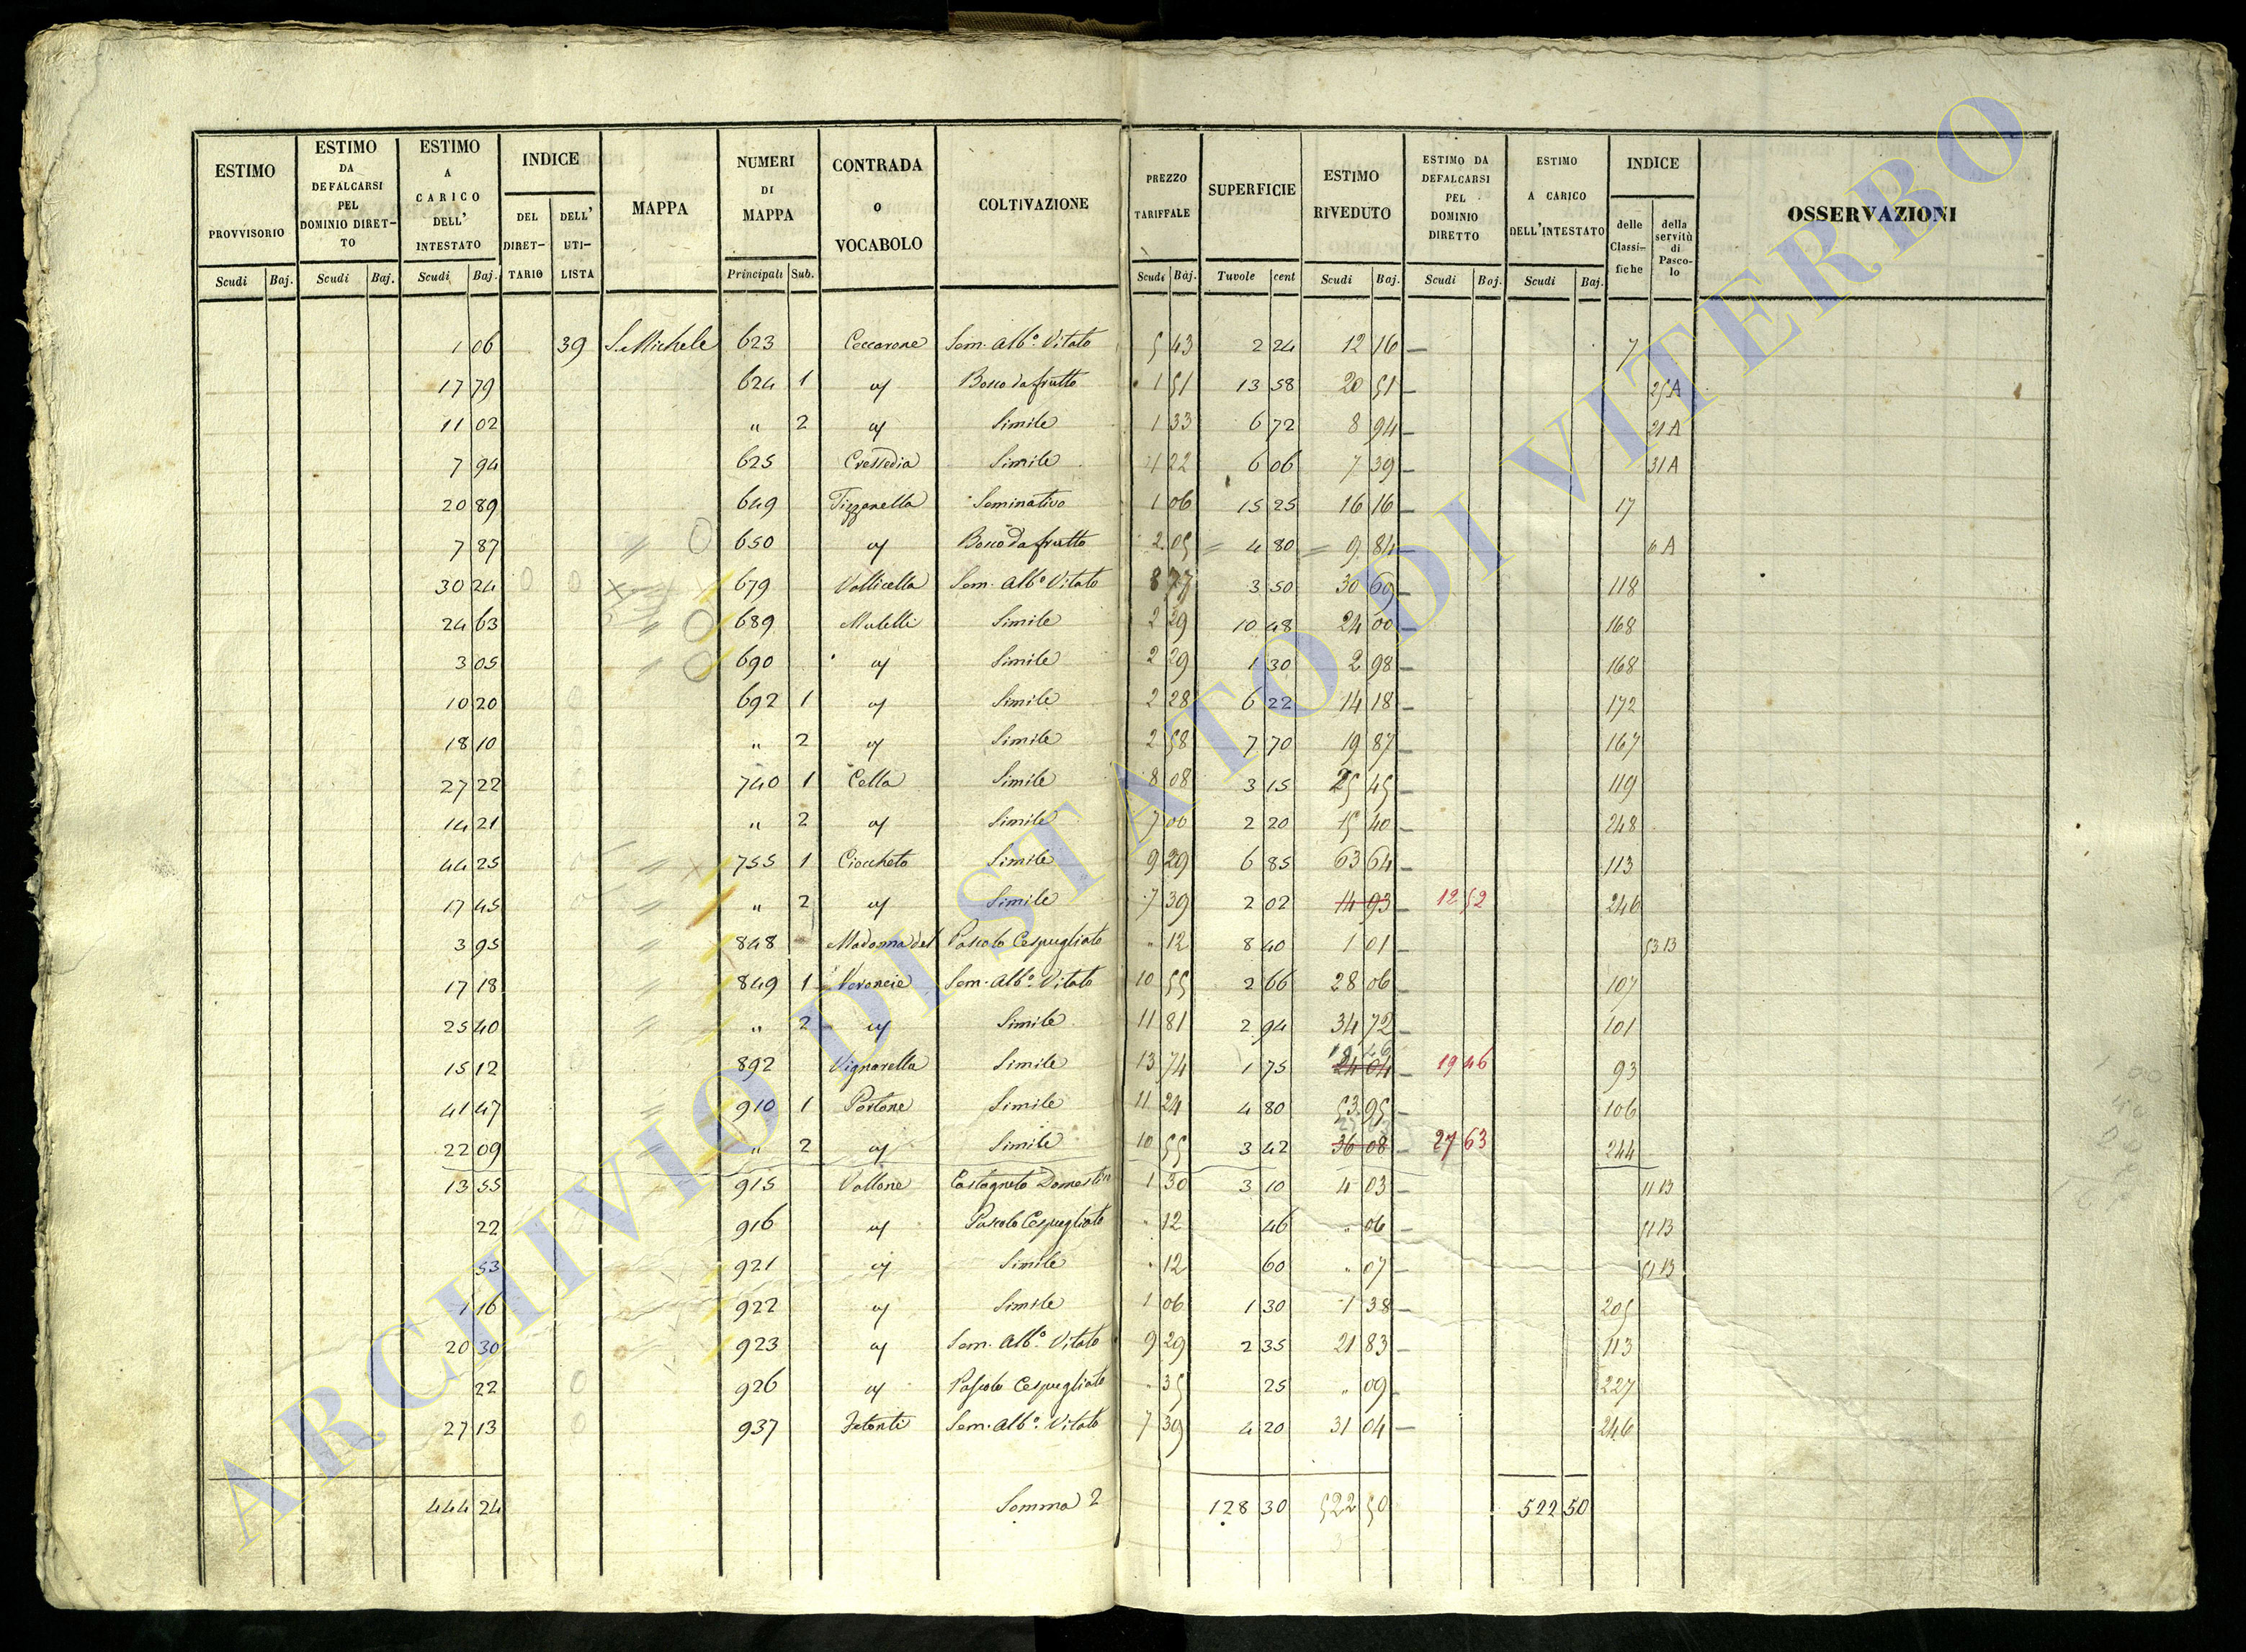 ESTIMO PROVVISORIO Scudi Baj. ESTIMO DA DEFALCARSI PEL DOMINIO DIRETTO Scudi Baj. ESTIMO A CARICO DELL' INTESTATO Scudi Baj. INDICE DEL DIRETTARIO DELL' UTILISTA MAPPA NUMERI DI MAPPA Principali Sub. CONTRADA O VOCABOLO COLTIVAZIONE PREZZO TARIFFALE Scudi Baj. SUPERFICIE Tavole cent ESTIMO RIVEDUTO Scudi Baj. ESTIMO DA DEFALCARSI PEL DOMINIO DIRETTO Scudi Baj. ESTIMO A CARICO DELL'INTESTATO Scudi Baj. INDICE delle Classifiche della servitù di Pascolo OSSERVAZIONI
1 06 39 S. Michele 623 Ceccarone Sem. Alb.º Vitato 5 43 2 24 12 16 — 7
17 79 624 1 Bosco da frutto 1 51 13 58 20 51 — 25 A
11 02 " 2 Simile 1 33 6 72 8 94 — 21 A
7 94 625 Simile 22 6 06 7 39 — 31 A
20 89 649 Tizzanella Seminativo 1 06 15 25 16 16 — 17
7 87 650 Bosco da frutto 2 05 4 80 9 84 — 6 A
30 24 679 Vallicella Sem. Alb.º Vitato 8 77 3 50 30 69 — 118
24 63 689 Muletti Simile 2 29 10 48 24 00 — 168
3 05 690 Simile 2 29 1 30 2 98 — 168
10 20 692 1 Simile 2 28 6 22 14 18 — 172
18 10 " 2 Simile 2 58 7 70 19 87 — 167
27 22 740 1 Cella Simile 8 08 3 15 25 45 — 119
14 21 " 2 Simile 7 00 2 20 15 40 — 248
44 25 755 1 Ciocheto Simile 9 29 6 85 63 64 — 113
17 45 " 2 Simile 7 39 2 02 14 93 — 12 52 246
3 95 848 Madonna del Pascolo Cespugliato " 12 8 40 1 01 — 53 B
17 18 849 1 Sem. Alb.º Vitato 10 55 2 66 28 06 — 107
25 40 " 2 Simile 11 81 2 94 34 72 — 101
15 12 892 Vignarella Simile 13 74 1 75 24 04 — 19 46 93
41 47 910 1 Portone Simile 11 24 4 80 53 95 — 106
22 09 " 2 Simile 10 55 3 42 36 08 — 27 63 244
13 55 915 Vallone Castagneto Domestico 1 30 3 10 4 03 — 11 B
22 916 Pascolo Cespugliato " 12 46 " 06 — 51 B
53 921 Simile " 12 60 " 07 — 51 B
1 16 922 Simile 1 06 1 30 1 38 — 205
20 30 923 Sem. Alb.º Vitato 9 29 2 35 21 83 — 113
22 926 Pascolo Cespugliato " 35 25 " 09 — 227
27 13 937 Sem. Alb.º Vitato 7 39 4 20 31 04 — 246
444 24 Somma 2 128 30 522 50 522 50
ARCHIVIO DI STATO DI VITERBO